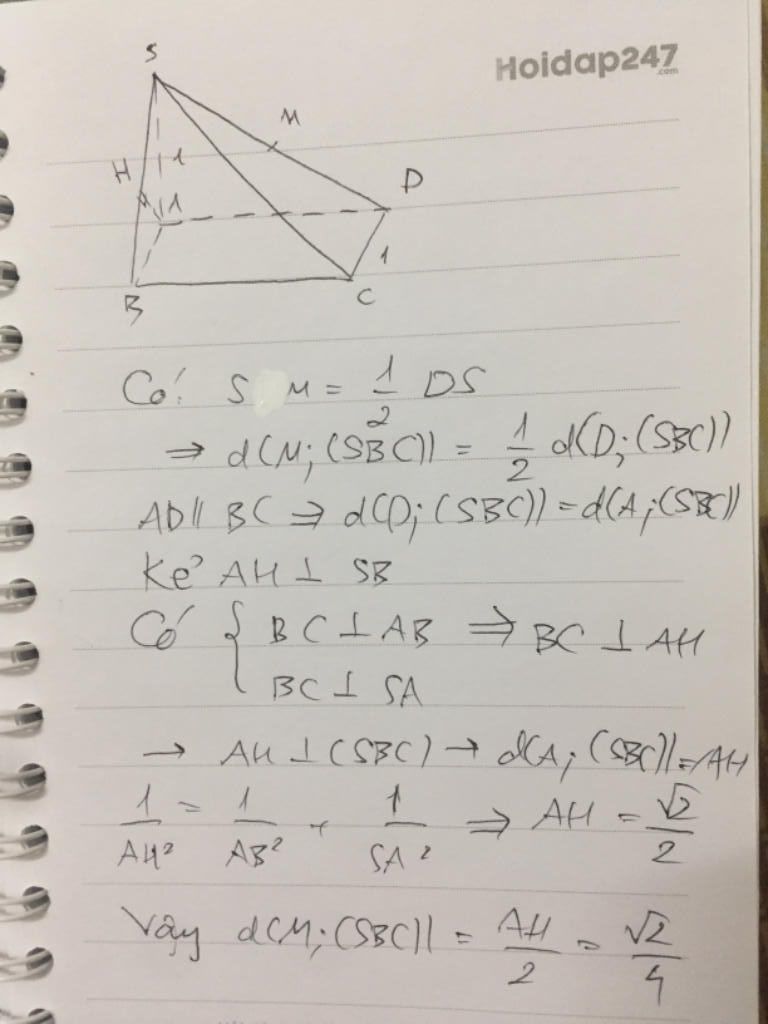 Hoidap247
.com
S
M
H
1
D
1
1
B
C
Có: S M = 1/2 DS
⇒ d(M; (SBC)) = 1/2 d(D; (SBC))
AD // BC ⇒ d(D; (SBC)) = d(A; (SBC))
Kẻ AH ⊥ SB
Có { BC ⊥ AB ⇒ BC ⊥ AH
BC ⊥ SA
→ AH ⊥ (SBC) → d(A; (SBC)) = AH
1/AH² = 1/AB² + 1/SA² ⇒ AH = √2/2
Vậy d(M; (SBC)) = AH/2 = √2/4